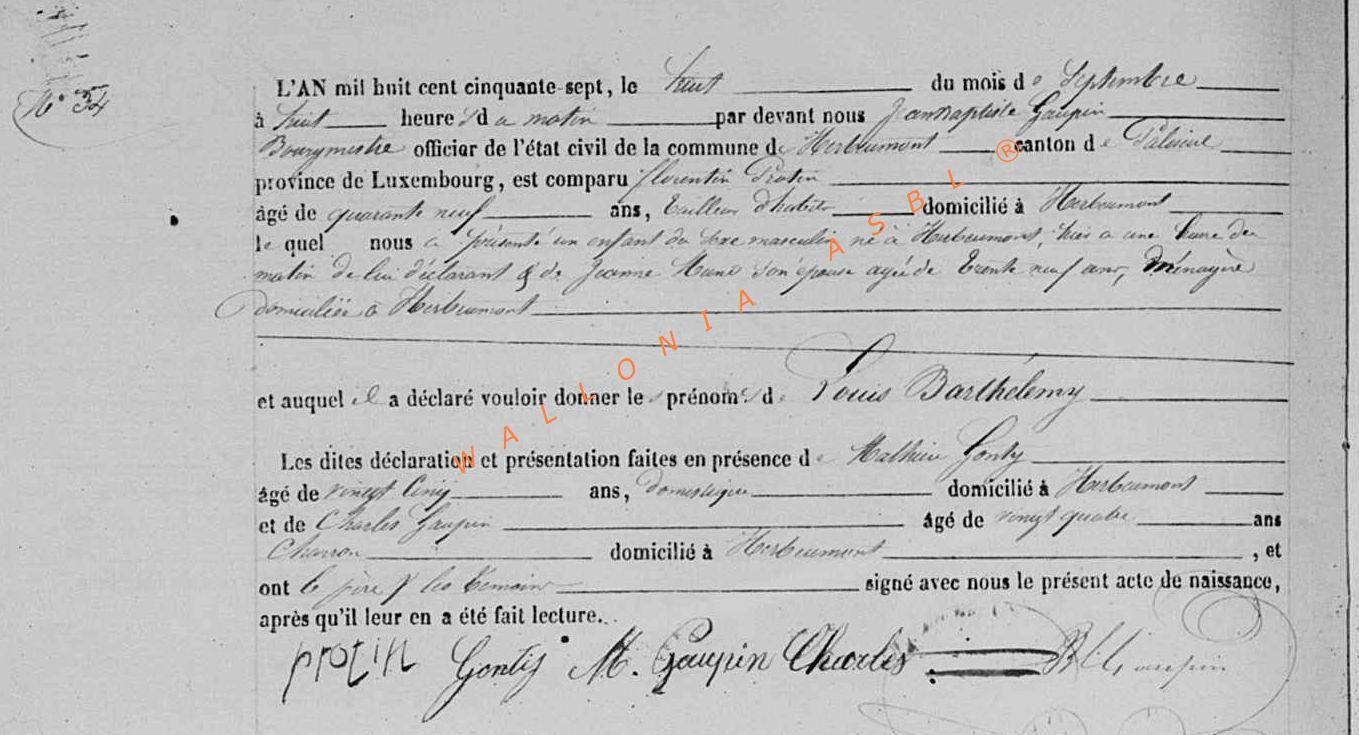 N° 34
L'AN mil huit cent cinquante-sept, le huit du mois de Septembre
à huit heures du matin par devant nous Jean Baptiste Gaupin
Bourgmestre officier de l'état civil de la commune de Herbeumont canton de Paliseul
province de Luxembourg, est comparu florentin Protin
âgé de quarante neuf ans, tailleur d'habits domicilié à Herbeumont
le quel nous a présenté un enfant du sexe masculin né à Herbeumont, hier a une heure du
matin de lui déclarant & de Jeanne son épouse agée de trente neuf ans, Ménagère
domiciliée à Herbeumont
et auquel il a déclaré vouloir donner les prénoms de Louis Barthélemy
Les dites déclaration et présentation faites en présence de Mathieu Gonty
âgé de vingt cinq ans, domestique domicilié à Herbeumont
et de Charles Gaupin âgé de vingt quatre ans
Charron domicilié à Herbeumont, et
ont le père & les témoins signé avec nous le présent acte de naissance,
après qu'il leur en a été fait lecture.
protin Gontij M. Gaupin Charles Gaupin
WALLONIA ASBL ®